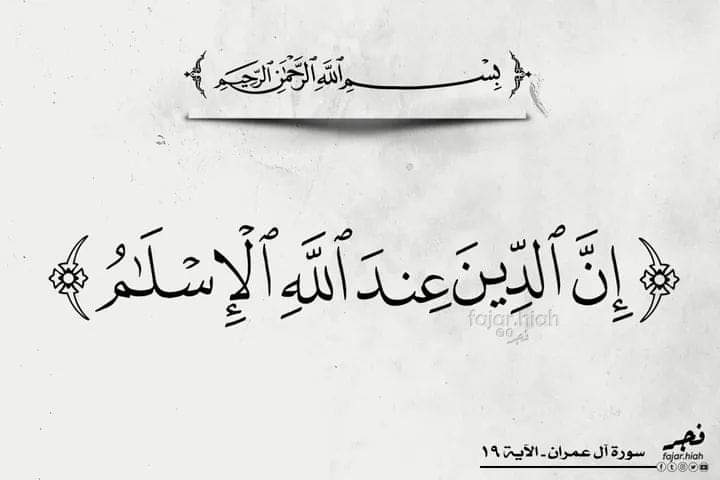 بِسْمِ ٱللَّهِ ٱلرَّحْمَٰنِ ٱلرَّحِيمِ
﴿ إِنَّ ٱلدِّينَ عِندَ ٱللَّهِ ٱلْإِسْلَٰمُ ﴾
fajar.hiah
فجر
فجر
سورة آل عمران - الآية ١٩
fajar.hiah